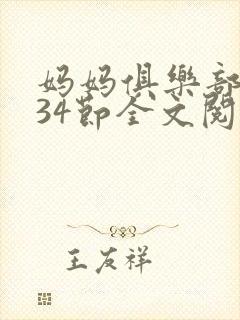 妈妈俱樂部
34節全文閱
王友祥